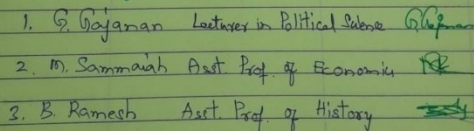 1. G. Gajanan Lecturer in Political Science G. Gajanan
2. M. Sammaiah Asst. Prof. of Economics
3. B. Ramesh Asst. Prof. of History